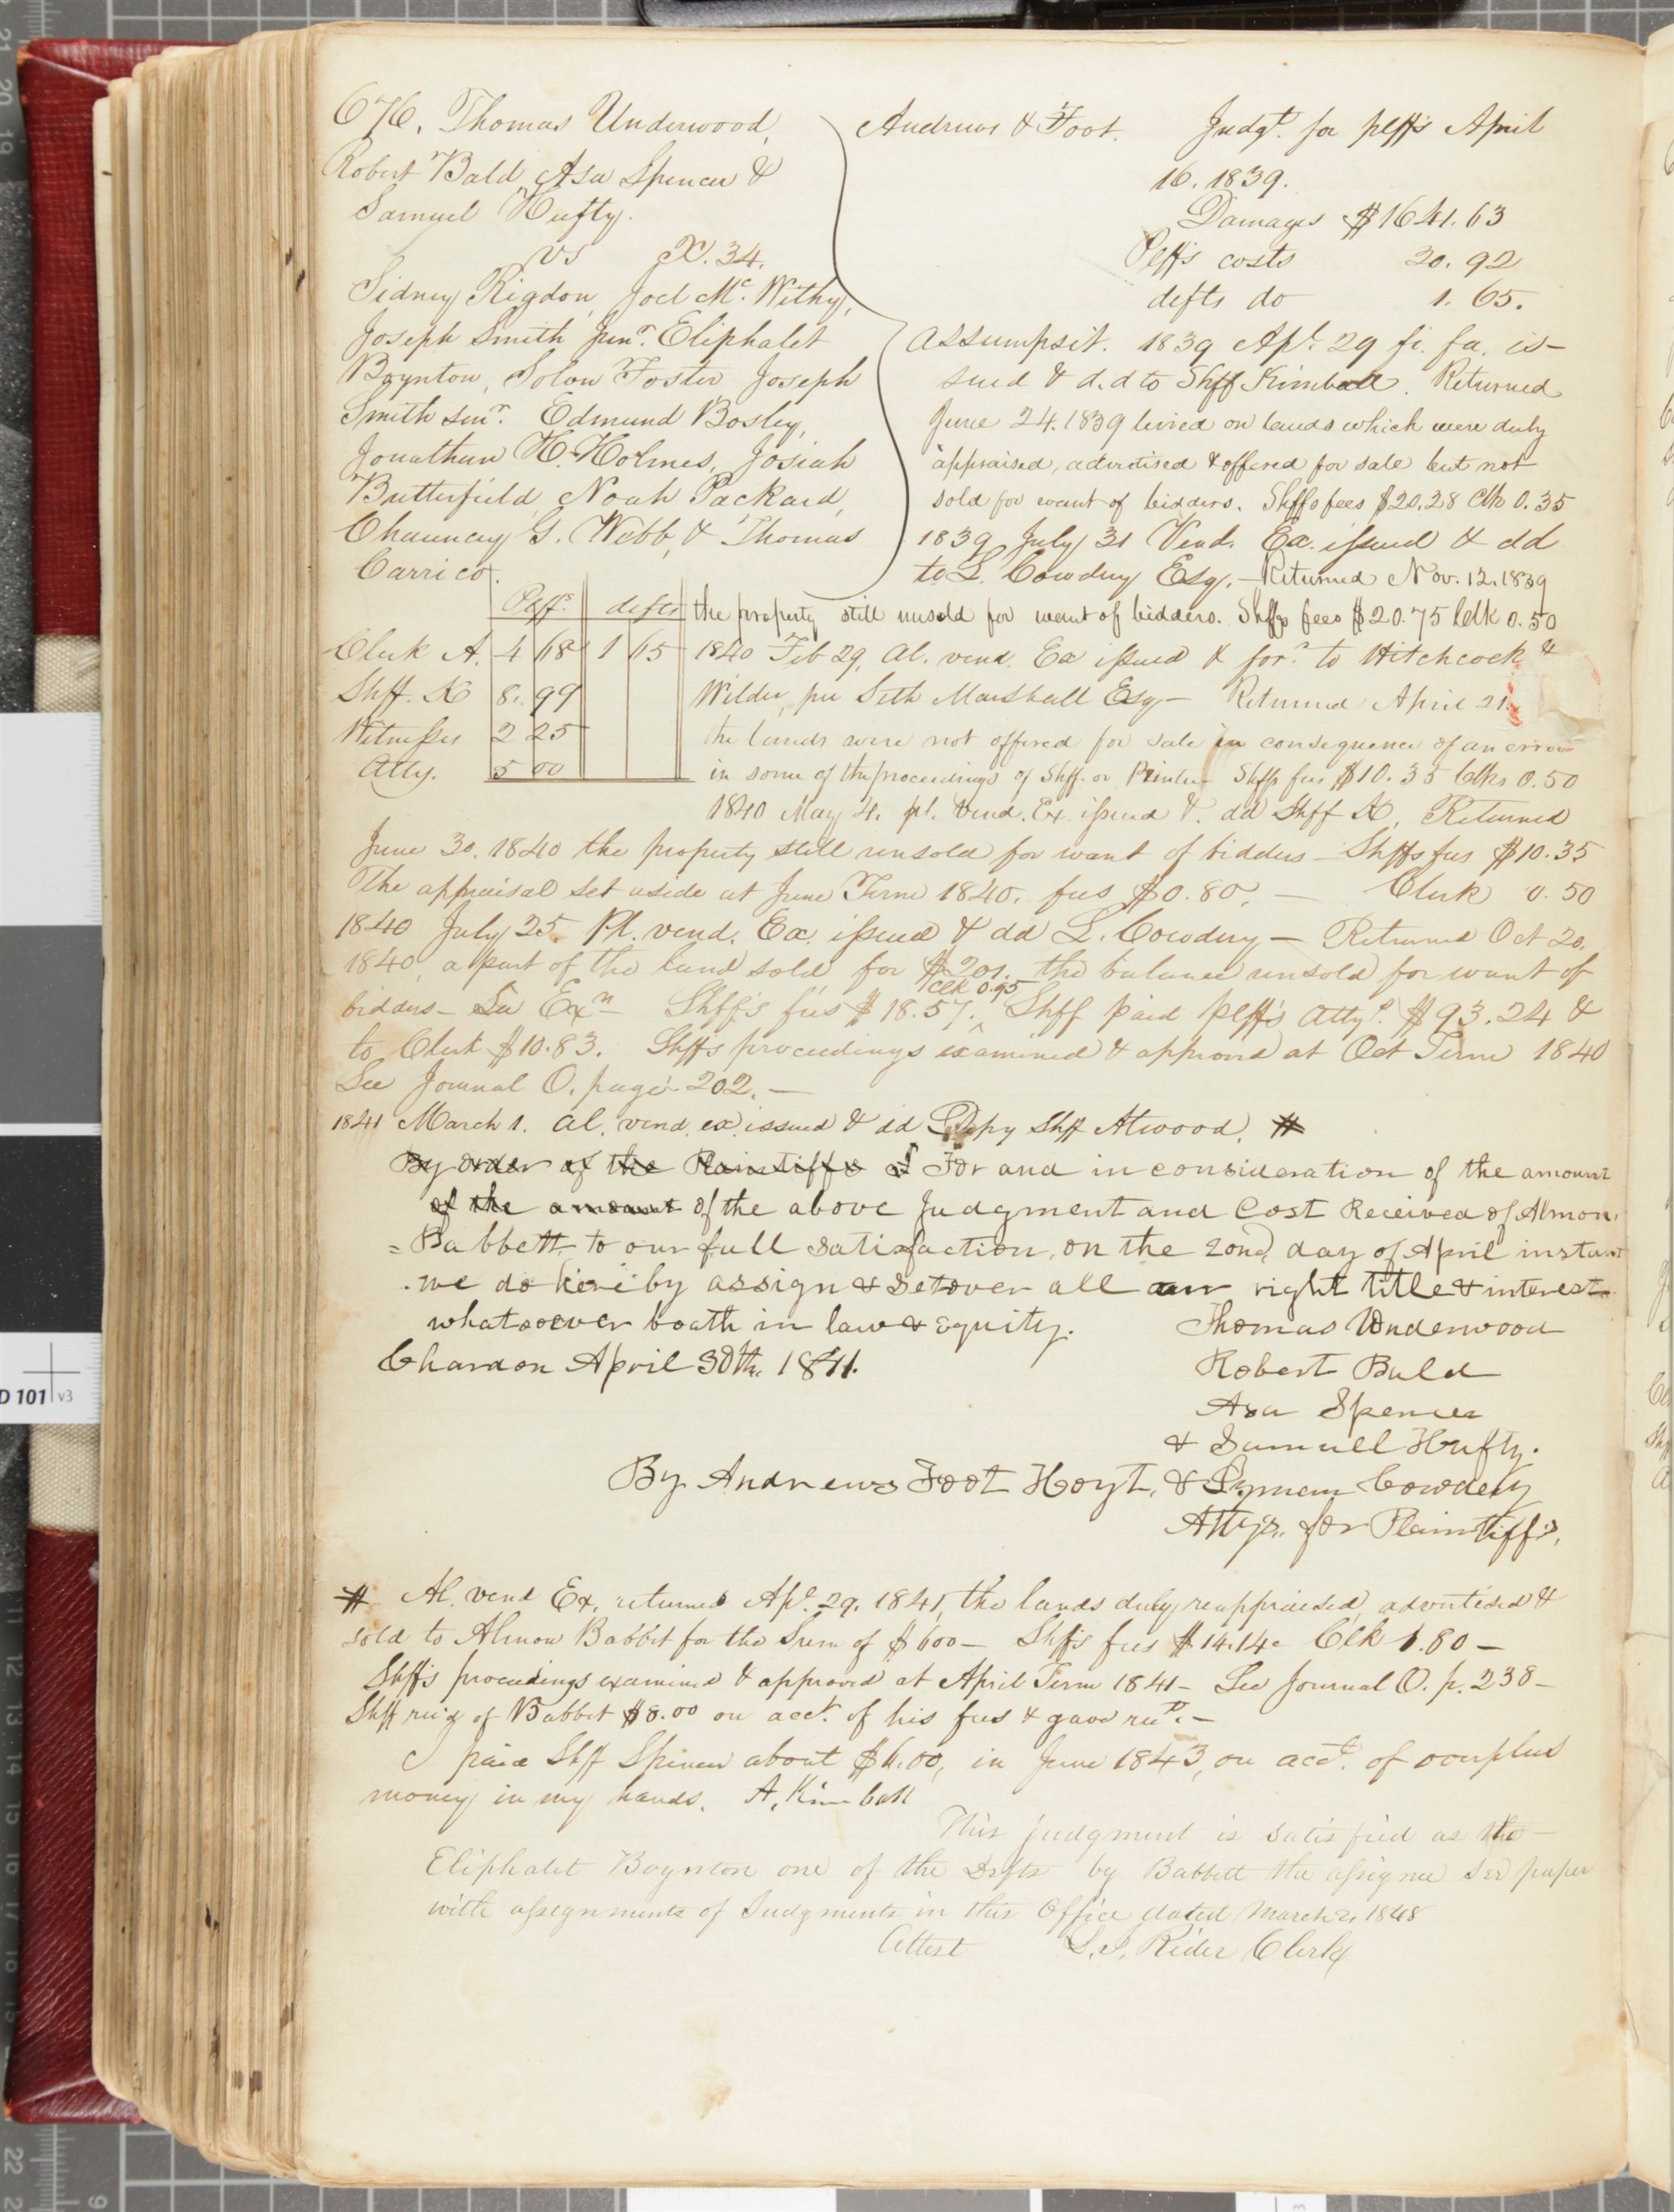 676. Thomas Underwood,
Robert Bald, Asa Spencer &
Samuel Hufty.
vs X. 34.
Sidney Rigdon, Joel Mc. Withy,
Joseph Smith Junr. Eliphalet
Boynton, Solon Foster, Joseph
Smith senr. Edmund Bosley,
Jonathan H. Holmes, Josiah
Butterfield, Noah Packard,
Chauncey G. Webb, & Thomas
Carrico.
Andrews & Foot. Judgt. for plffs April
16. 1839.
Damages $1641.63
Plffs costs 20.92
defts do 1.65.
Assumpsit. 1839 Apl. 29 fi. fa. is-
sued & d.d to Shff Kimball. Returned
June 24. 1839 levied on lands which were duly
appraised, advertised & offered for sale but not
sold for want of bidders. Shffs fees $20.28 Clk 0.35
1839 July 31 Vend. Ex. issued & dd
to L. Cowdery Esq. - Returned Nov. 12. 1839
the property still unsold for want of bidders. Shffs fees $20.75 Clk 0.50
Plffs. defts
Clerk A. 4 68 1 65
Shff. K 8. 99
Witnesses 2 25
Atty. 5 00
1840 Feb 29, al. vend. Ex issued & ford. to Hitchcock &
Wilder, per Seth Marshall Esq - Returned April 21.
the lands were not offered for sale in consequence of an error
in some of the proceedings of Shff. or Printer Shffs fees $10.35 Clks 0.50
1840 May 4. pl. Vend. Ex. issued &. dd Shff K, Returned
June 30. 1840 the property still unsold for want of bidders - Shffs fees $10.35
The appraisal set aside at June Term 1840. fees $0.80, - Clerk 0.50
1840 July 25. Pl. vend. Ex. issued & dd L. Cowdery - Returned Oct 20.
1840, a part of the land sold for $201. the balance unsold for want of
bidders - See Exn - Shff's fees $18.57. ^ Clk 0.95 Shff paid plffs Attys. $93.24 &
to Clerk $10.83. Shffs proceedings examined & approved at Oct Term 1840
See Journal O. page 202. -
1841 March 1. al. vend. ex. issued & dd Depy Shff Atwood. #
By order of the Plaintiffs & For and in consideration of the amount
of the amount of the above Judgment and Cost Received of Almon
= Babbett to our full satisfaction, on the 20nd day of April instant
we do hereby assign & setover all our right title & interest
whatsoever boath in law & Equity. Thomas Underwood
Chardon April 30th. 1841. Robert Bald
Asa Spencer
& Samuell Hufty.
By Andrews Foot Hoyt, & Lyman Cowdery
Attys. for Plaintiffs,
# Al. vend Ex. returned Apl. 29. 1841, the lands duly reappraised, advertised &
sold to Almon Babbit for the Sum of $600 - Shffs fees $14.14 Clk 1.80 -
Shffs proceedings examined & approved at April Term 1841 - See Journal O. p. 238 -
Shff recd of Babbit $8.00 on acct. of his fees & gave rect. -
I paid Shff Spencer about $6.00, in June 1843, on acct. of overplus
money in my hands. A. Kimball
This judgment is satisfied as the
Eliphalet Boynton one of the Defts by Babbett the assignee See paper
with assignments of Judgments in this Office dated March 2, 1848
Attest L. I. Rider Clerk
D 101 v3